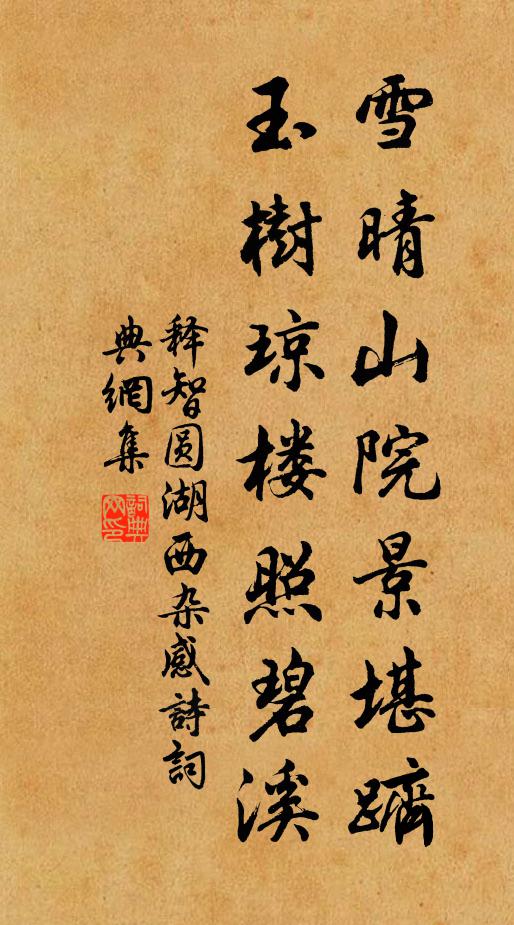 雪晴山院景堪躋
玉樹琼楼照碧溪
释智圆湖西杂感詩詞
典網集
詞典网印